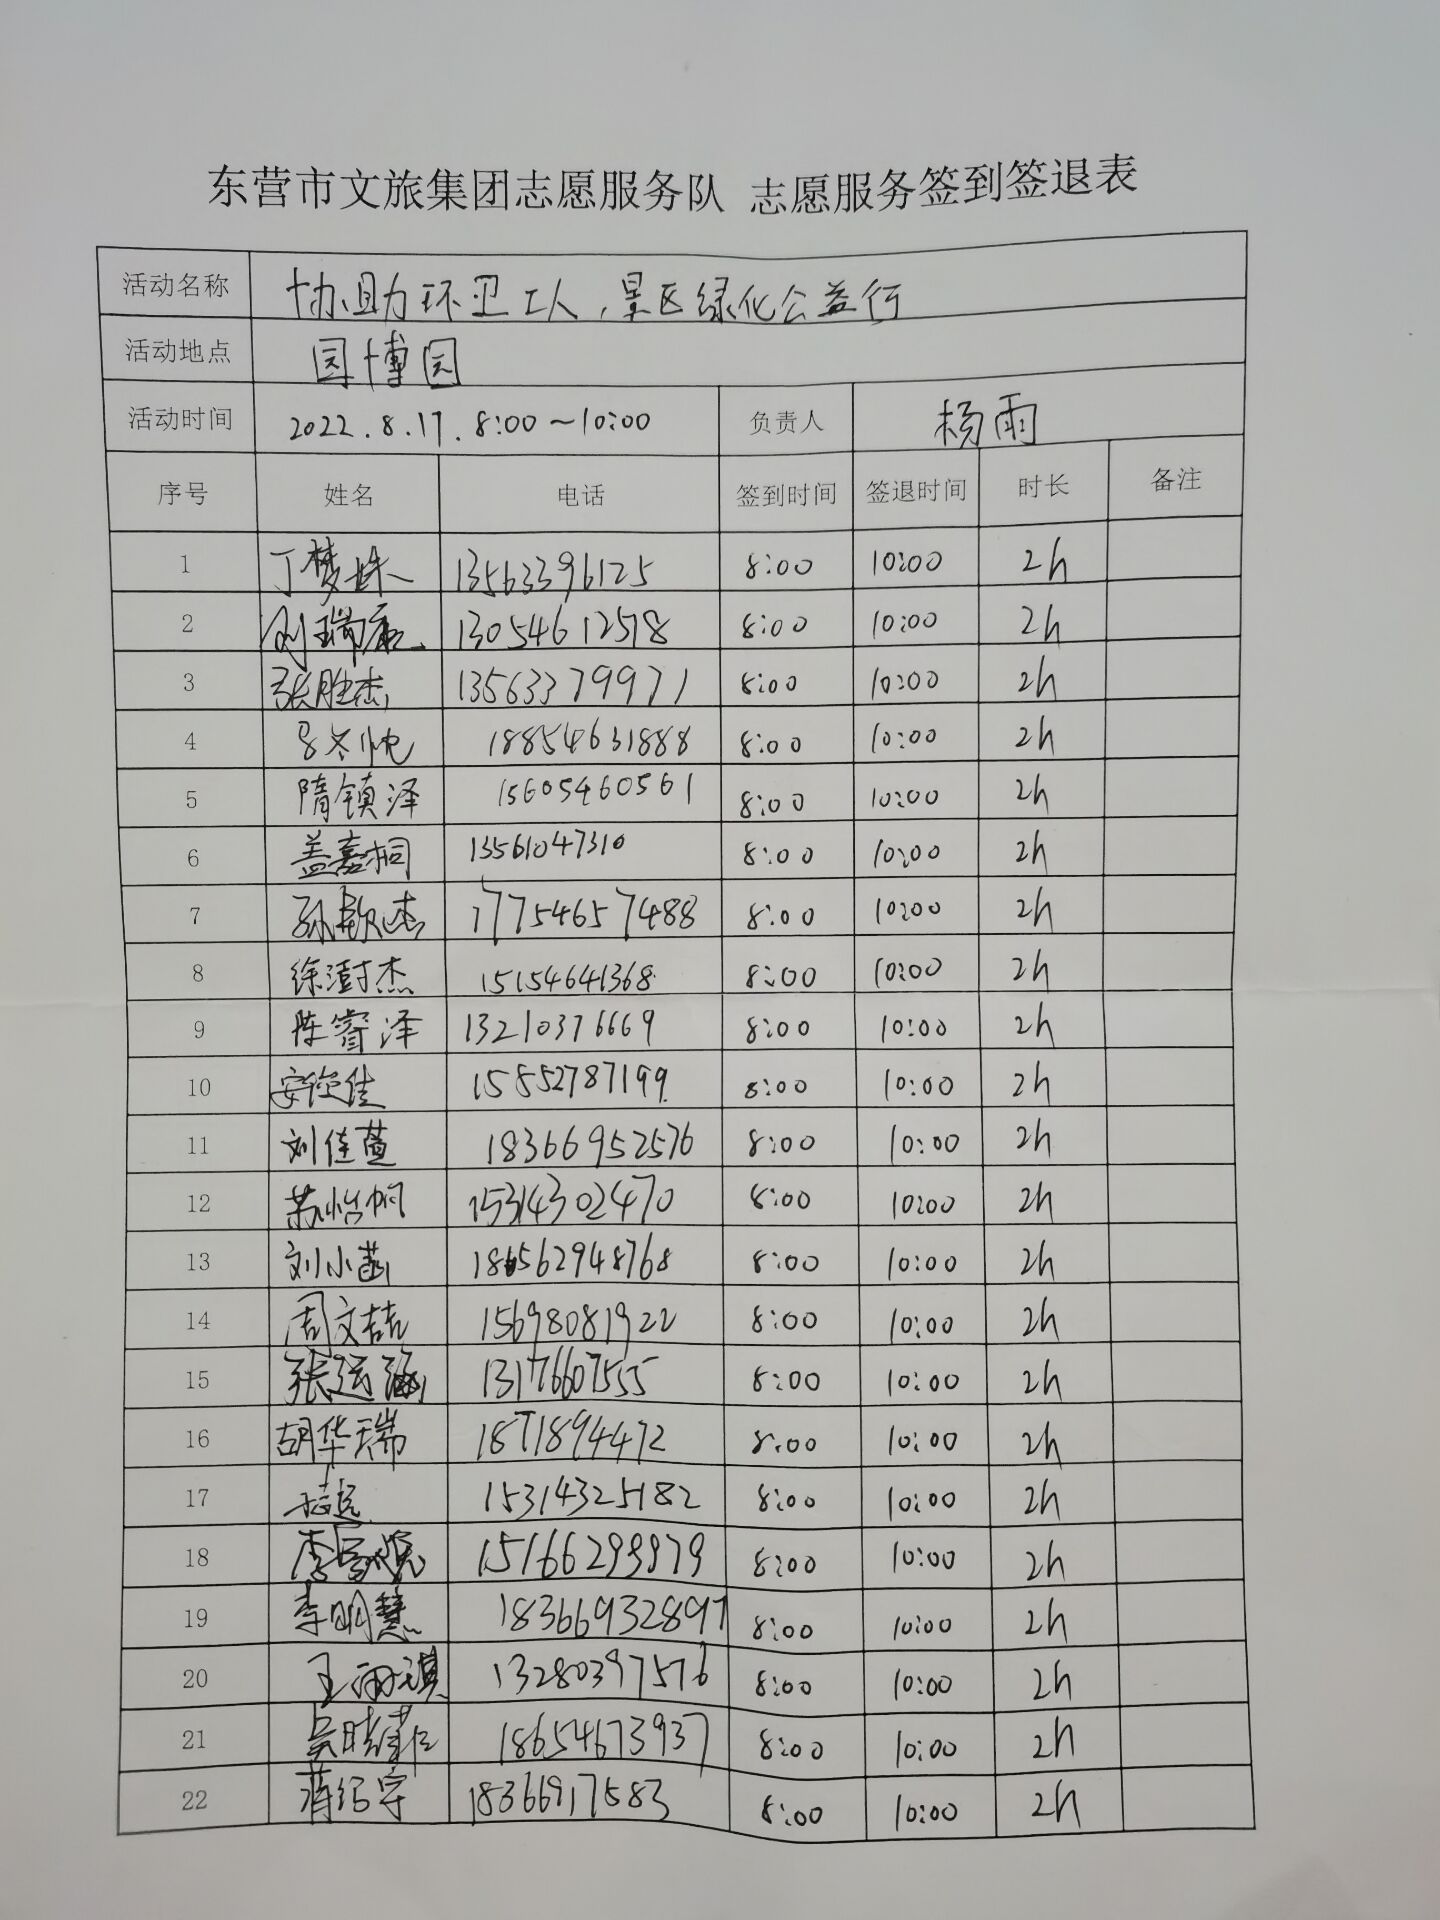 东营市文旅集团志愿服务队 志愿服务签到签退表
活动名称 协助环卫工人，景区绿化公益行
活动地点 园博园
活动时间 2022.8.17. 8:00~10:00 负责人 杨雨
序号 姓名 电话 签到时间 签退时间 时长 备注
1 丁梦姝 13563396125 8:00 10:00 2h
2 刘瑞康 13054612518 8:00 10:00 2h
3 张胜杰 13563379971 8:00 10:00 2h
4 吕冬帅 18854631888 8:00 10:00 2h
5 隋镇泽 15605460561 8:00 10:00 2h
6 盖嘉桐 13561047310 8:00 10:00 2h
7 孙钦杰 17754657488 8:00 10:00 2h
8 徐澍杰 15154641368 8:00 10:00 2h
9 陈睿泽 13210376669 8:00 10:00 2h
10 15852787199 8:00 10:00 2h
11 刘佳萱 18366952576 8:00 10:00 2h
12 苏怡帆 15314302470 8:00 10:00 2h
13 刘小菡 18562948768 8:00 10:00 2h
14 周文喆 15698081922 8:00 10:00 2h
15 张运涵 13176607555 8:00 10:00 2h
16 胡华瑞 8:00 10:00 2h
17 15314325182 8:00 10:00 2h
18 15166299979 8:00 10:00 2h
19 李明慧 18366932897 8:00 10:00 2h
20 王雨琪 13280397576 8:00 10:00 2h
21 18654673937 8:00 10:00 2h
22 蒋绍宇 18366917583 8:00 10:00 2h